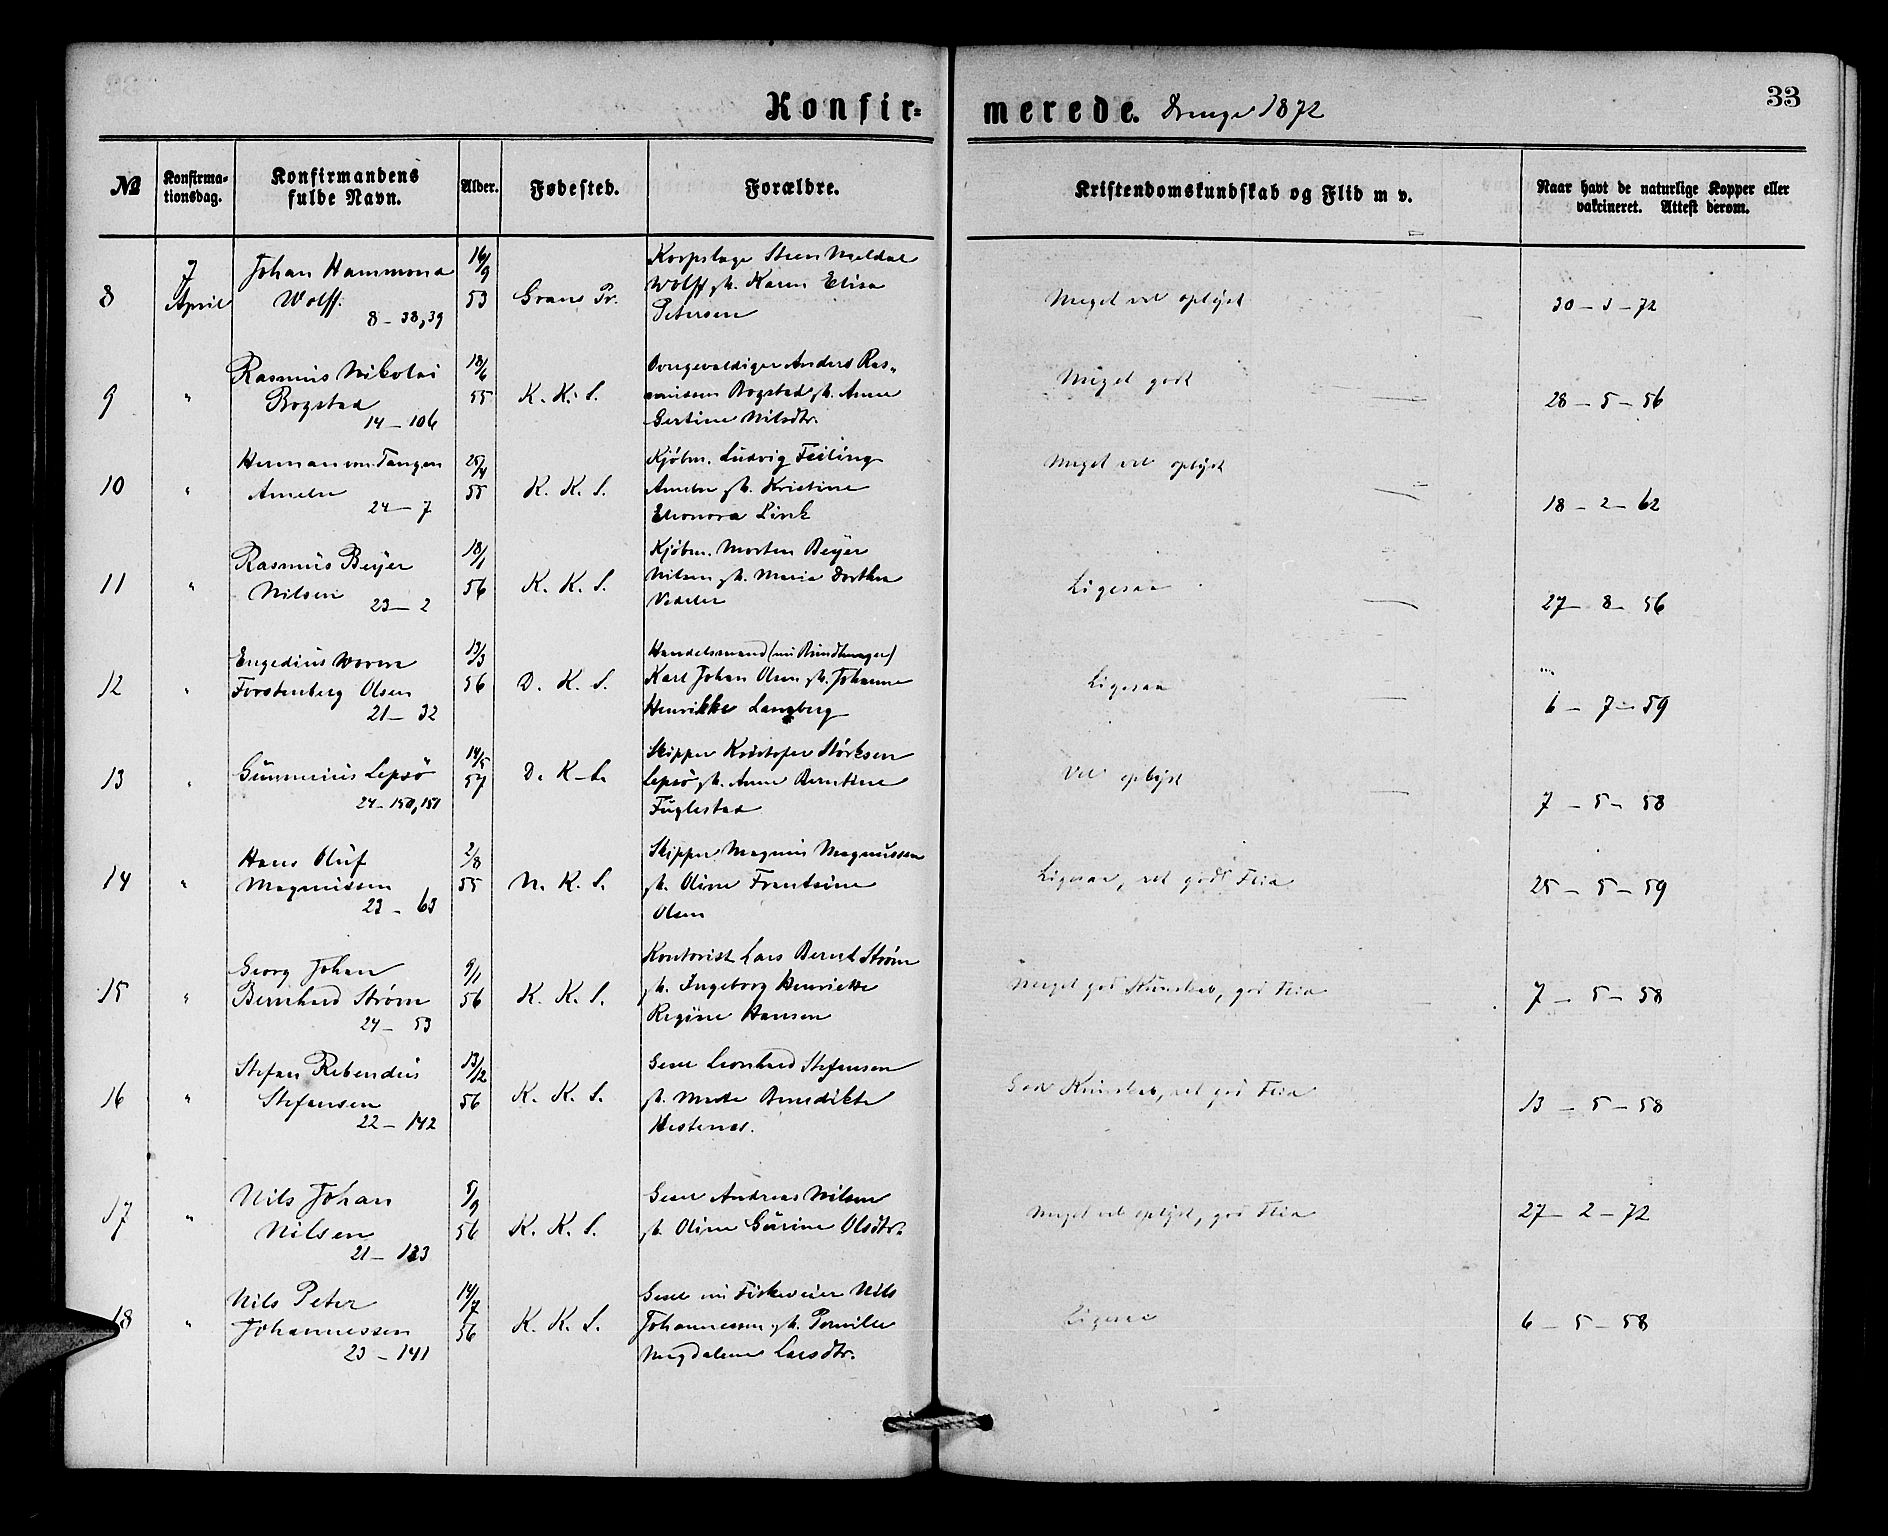 33
Konfir=
merede. Drenge 1872
№
Konfirma-
tionsdag.
Konfirmandens
fulde Navn.
Alder.
Fødested.
Forældre.
Kristendomskundskab og Flid m v.
Naar havt de naturlige Kopper eller
vakcineret. Attest derom.
8
7
April
Johan Hammond
Wolff.
8 - 38,39
16/9
53
Grans Pr.
Korpslæge Steen Meldal
Wolff gh. Karen Elisa
Petersen
Meget vel oplyst
30 - 3 - 72
9
"
Rasmus Nikolai
Bogstad
14 - 106
18/6
55
K. K. S.
Anders Ras-
mussen Bogstad gh. Anne
Gertine Nilsdtr.
Meget godt
28 - 5 - 56
10
"
Herman von Tangen
Ameln
24 - 7
25/4
55
K. K. S.
Kjøbm. Ludvig Feiling
Ameln gh. Kristine
Elionora Linck
Meget vel oplyst
18 - 2 - 62
11
"
Rasmus Beyer
Nilsen
23 - 2
18/1
56
K. K. S.
Kjøbm. Morten Beyer
Nilsen gh. Maria Dorthea
Vedeler
Ligesaa
27 - 8 - 56
12
"
Engedius Worm
Forstenberg Olsen
21 - 32
13/3
56
D. K. S.
Handelsmand (nu Bundtmager)
Karl Johan Olsen gh. Johanne
Henrikke Lamberg
Ligesaa
6 - 7 - 59
13
"
Gunnerius Lepsö
24 - 150,151
14/5
57
D. K - S.
Skipper Kristofer Störksen
Lepsö gh. Anne Berntine
Fuglestad
Vel oplyst
7 - 5 - 58
14
"
Hans Oluf
Magnussen
23 - 63
2/8
55
N. K. S.
Skipper Magnus Magnussen
gh. Oline Frantsine
Olsen
Ligesaa, vel godt Flid
25 - 5 - 59
15
"
Georg Johan
Bernhard Strøm
24 - 53
9/1
56
K. K. S.
Kontorist Lars Bernt Strøm
gh. Ingeborg Henriette
Regine Hansen
Meget god Kunskab, god Flid
7 - 5 - 58
16
"
Stefan Rebendus
Stefansen
22 - 142
13/12
56
K. K. S.
Gesel Leonhard Stefansen
gh. Mette Benedikte
Hestenes.
God Kunskab, vel god Flid
13 - 5 - 58
17
"
Nils Johan
Nilsen
21 - 123
5/9
56
K. K. S.
Gesel Andreas Nilsen
gh. Oline Gurine Olsdtr.
Meget vel oplyst, god Flid
27 - 2 - 72
18
"
Nils Peter
Johannessen
23 - 141
14/7
56
K. K. S.
Gesel nu Fiskeveier Nils
Johannessen gh. Pernille
Magdalene Larsdtr.
Ligesaa
6 - 5 - 58